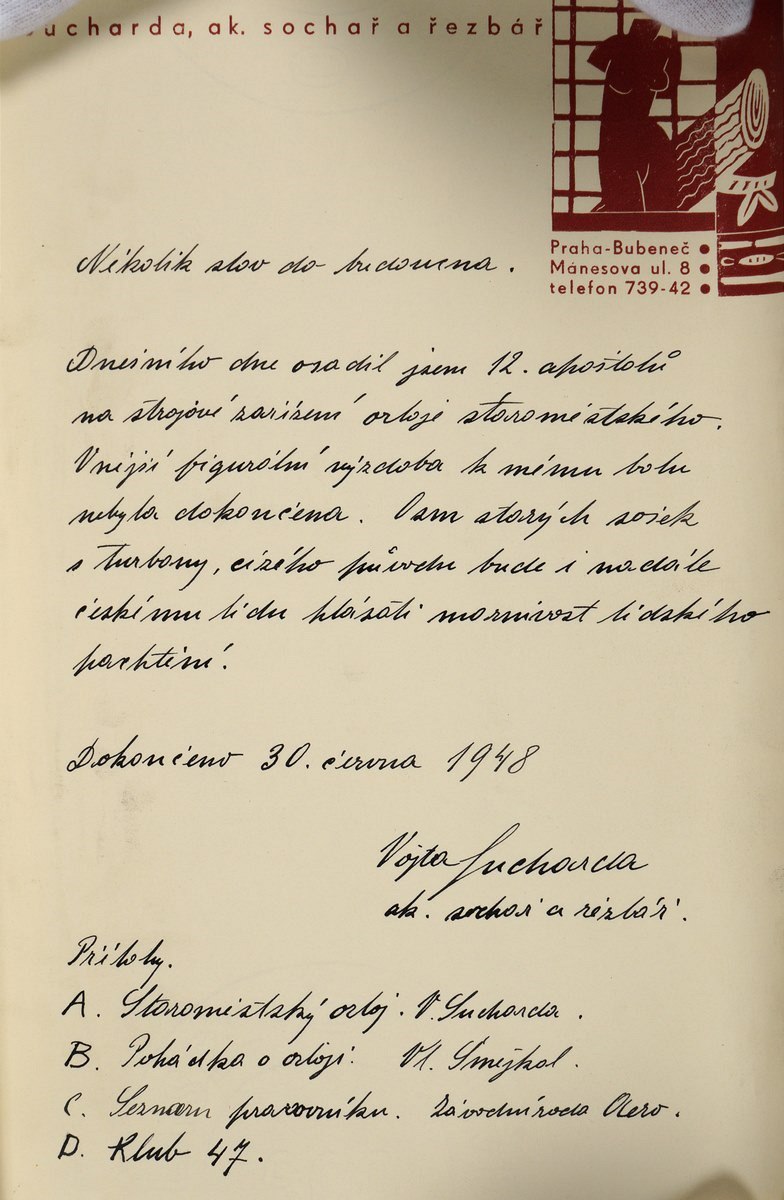 ucharda, ak. sochař a řezbář
Praha-Bubeneč ●
Mánesova ul. 8 ●
telefon 739-42 ●
Několik slov do budoucna.
Dnešního dne osadil jsem 12. apoštolů
na strojové zařízení orloje staroměstského.
Vnější figurální výzdoba k mému bolu
nebyla dokončena. Osm starých sošek
s turbany, cizého původu bude i nadále
českému lidu hlásati marnivost lidského
pachtění.
Dokončeno 30. června 1948
Vojta Sucharda
ak. sochař a řezbář.
Přílohy.
A. Staroměstský orloj. V. Sucharda.
B. Pohádka o orloji. Vl. Smejkal.
C. Seznam pracovníku. Závodní rada Aero.
D. Klub 47.